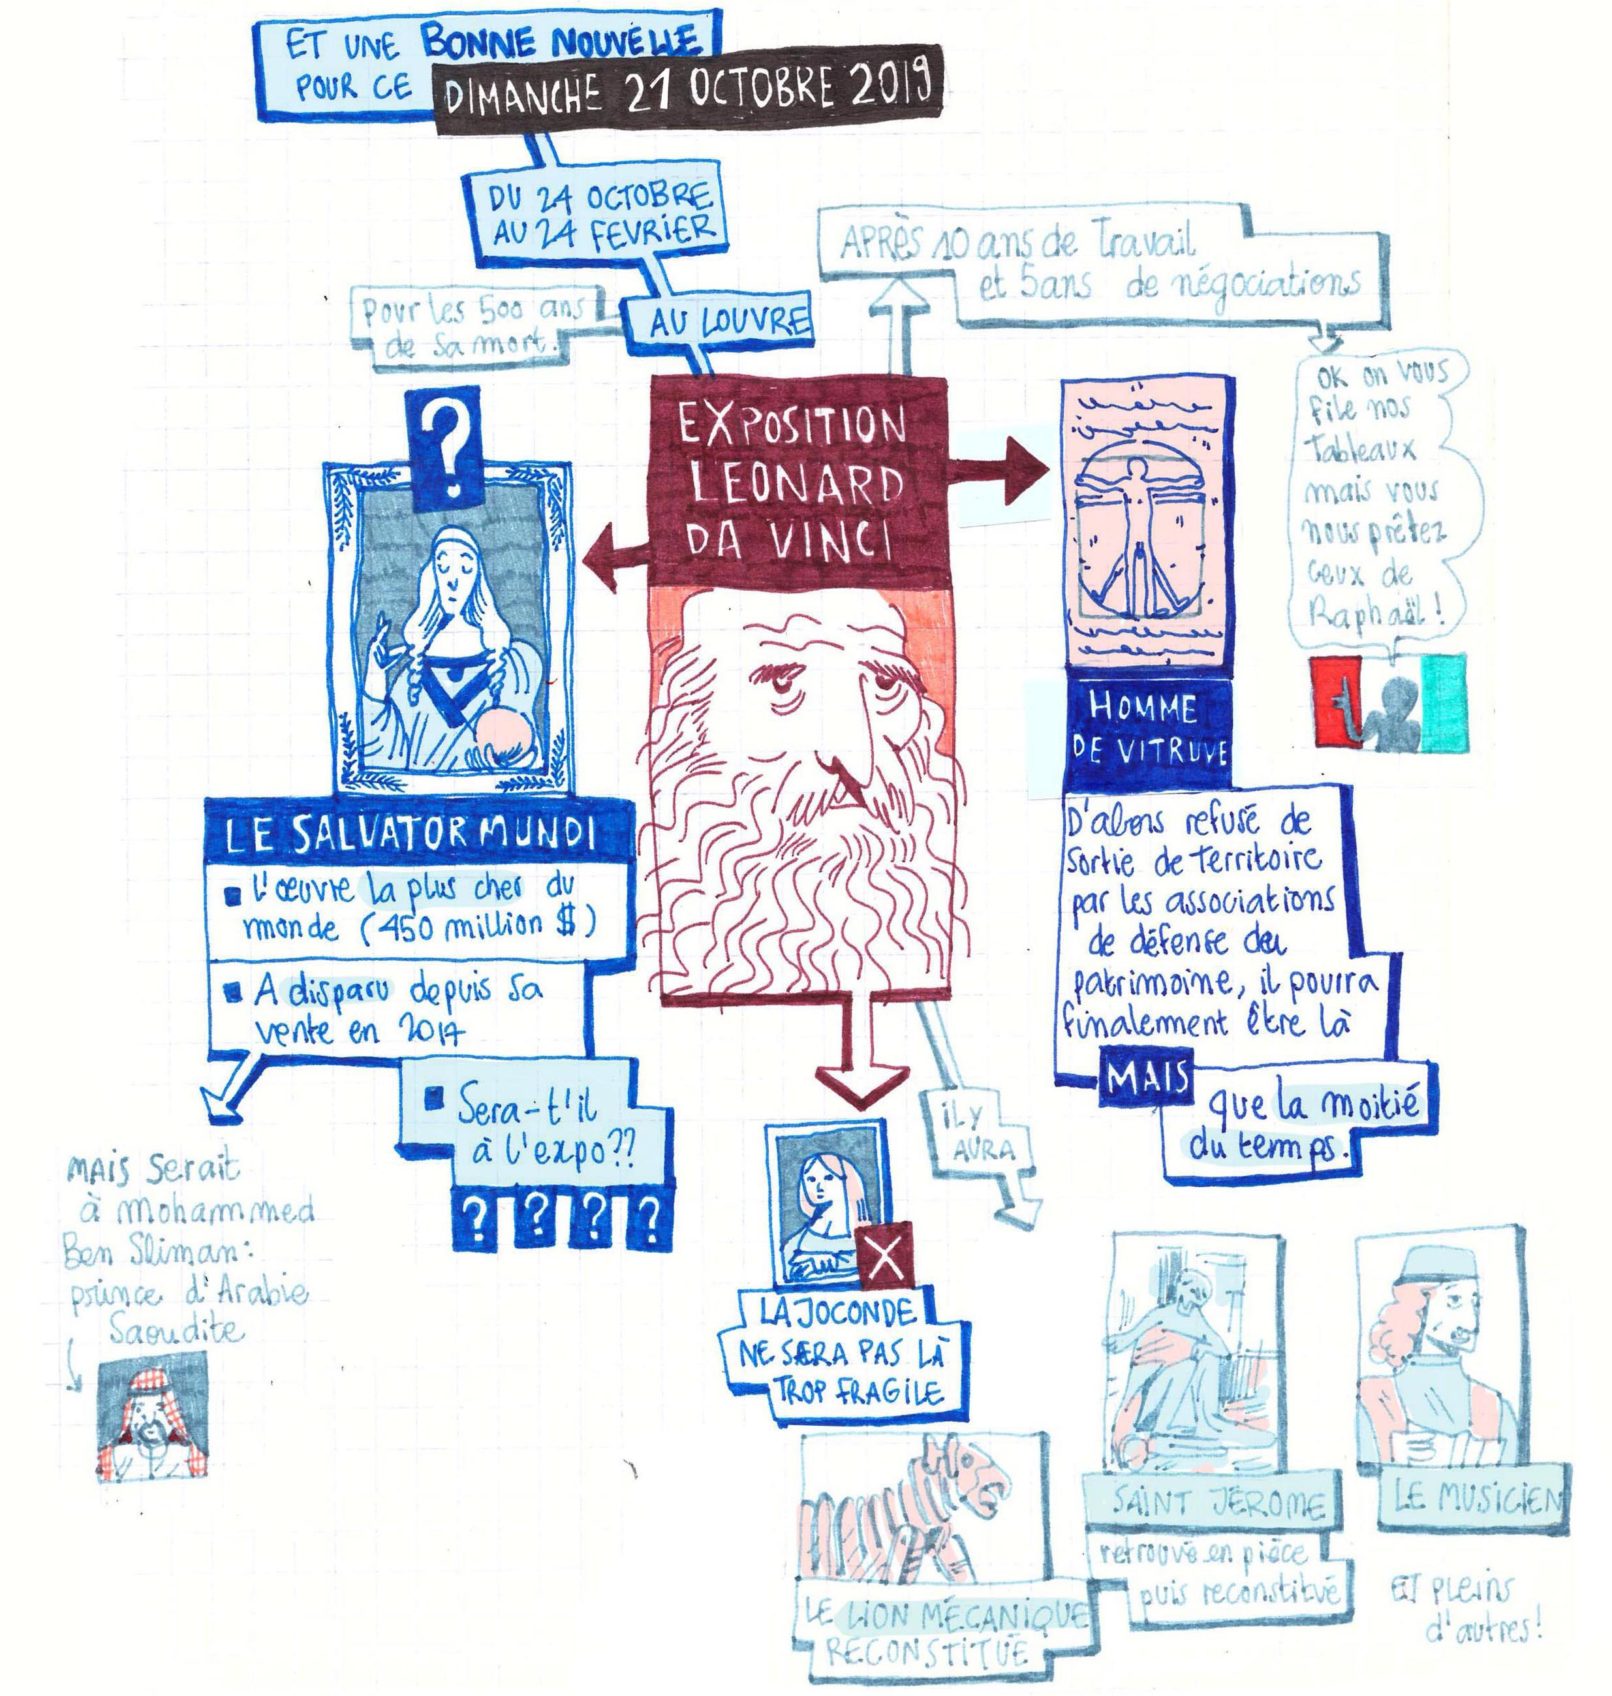 ET UNE BONNE NOUVELLE
POUR CE
DIMANCHE 21 OCTOBRE 2019
DU 24 OCTOBRE
AU 24 FEVRIER
AU LOUVRE
Pour les 500 ans
de sa mort.
APRÈS 10 ans de Travail
et 5ans de négociations
OK on vous
file nos
Tableaux
mais vous
nous prêtez
ceux de
Raphaël !
EXPOSITION
LEONARD
DA VINCI
?
LE SALVATOR MUNDI
L'œuvre la plus cher du
monde (450 million $)
A disparu depuis sa
vente en 2017
Sera-t'il
à l'expo??
? ? ? ?
MAIS Serait
à Mohammed
Ben Sliman:
prince d'Arabie
Saoudite
HOMME
DE VITRUVE
D'abors refusé de
sortie de Territoire
par les associations
de défense du
patrimoine, il pourra
finalement être là
MAIS
que la moitié
du temps.
iL Y
AURA
X
LA JOCONDE
NE SERA PAS LÀ
TROP FRAGILE
LE LION MÉCANIQUE
RECONSTITUÉ
SAINT JÉROME
retrouvé en pièce
puis reconstitué
LE MUSICIEN
ET PLEINS
d'autres!